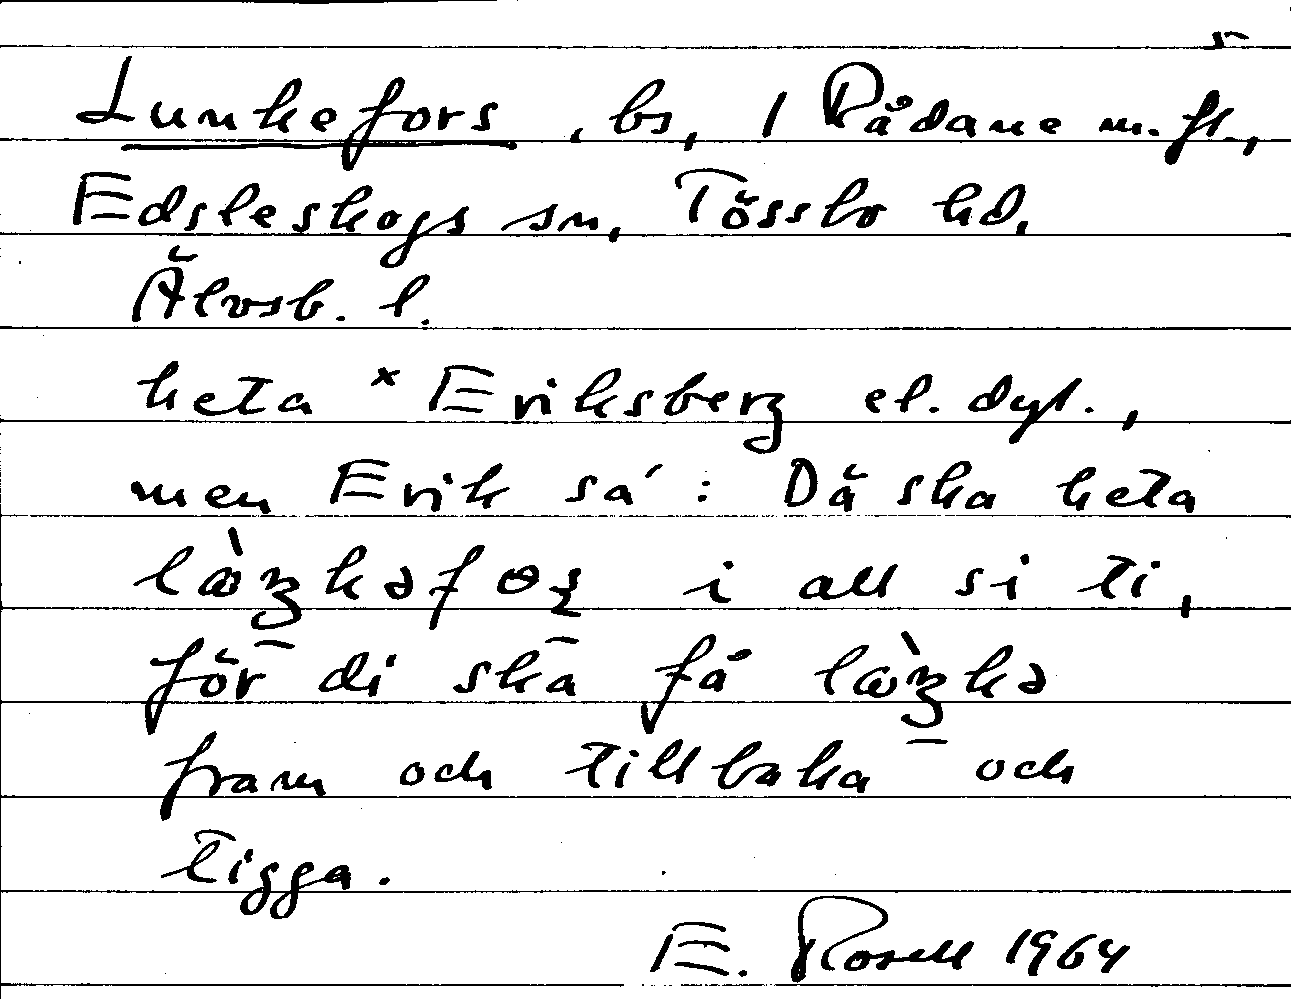 5
Lunkefors, bs, 1 Rådane m.fl.,
Edsleskogs sn, Tössbo hd,
Älvsb. l.
heta × Eriksberg el. dyl.,
men Erik sa': Dä ska heta
i all si ti,
för di ska få
fram och tillbaka och
tigga.
E. Rosell 1964